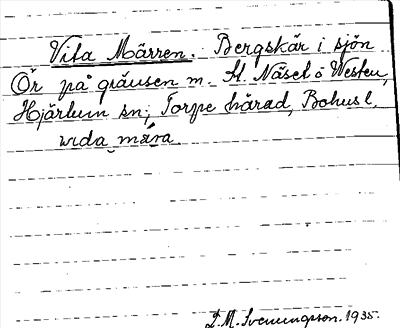 Vita Märren. Bergskär i sjön
Ör på gränsen m. St. Näset o Westen,
Hjärtum sn; Torpe härad, Bohusl.
wida mära.
L.M. Svenungsson. 1935.